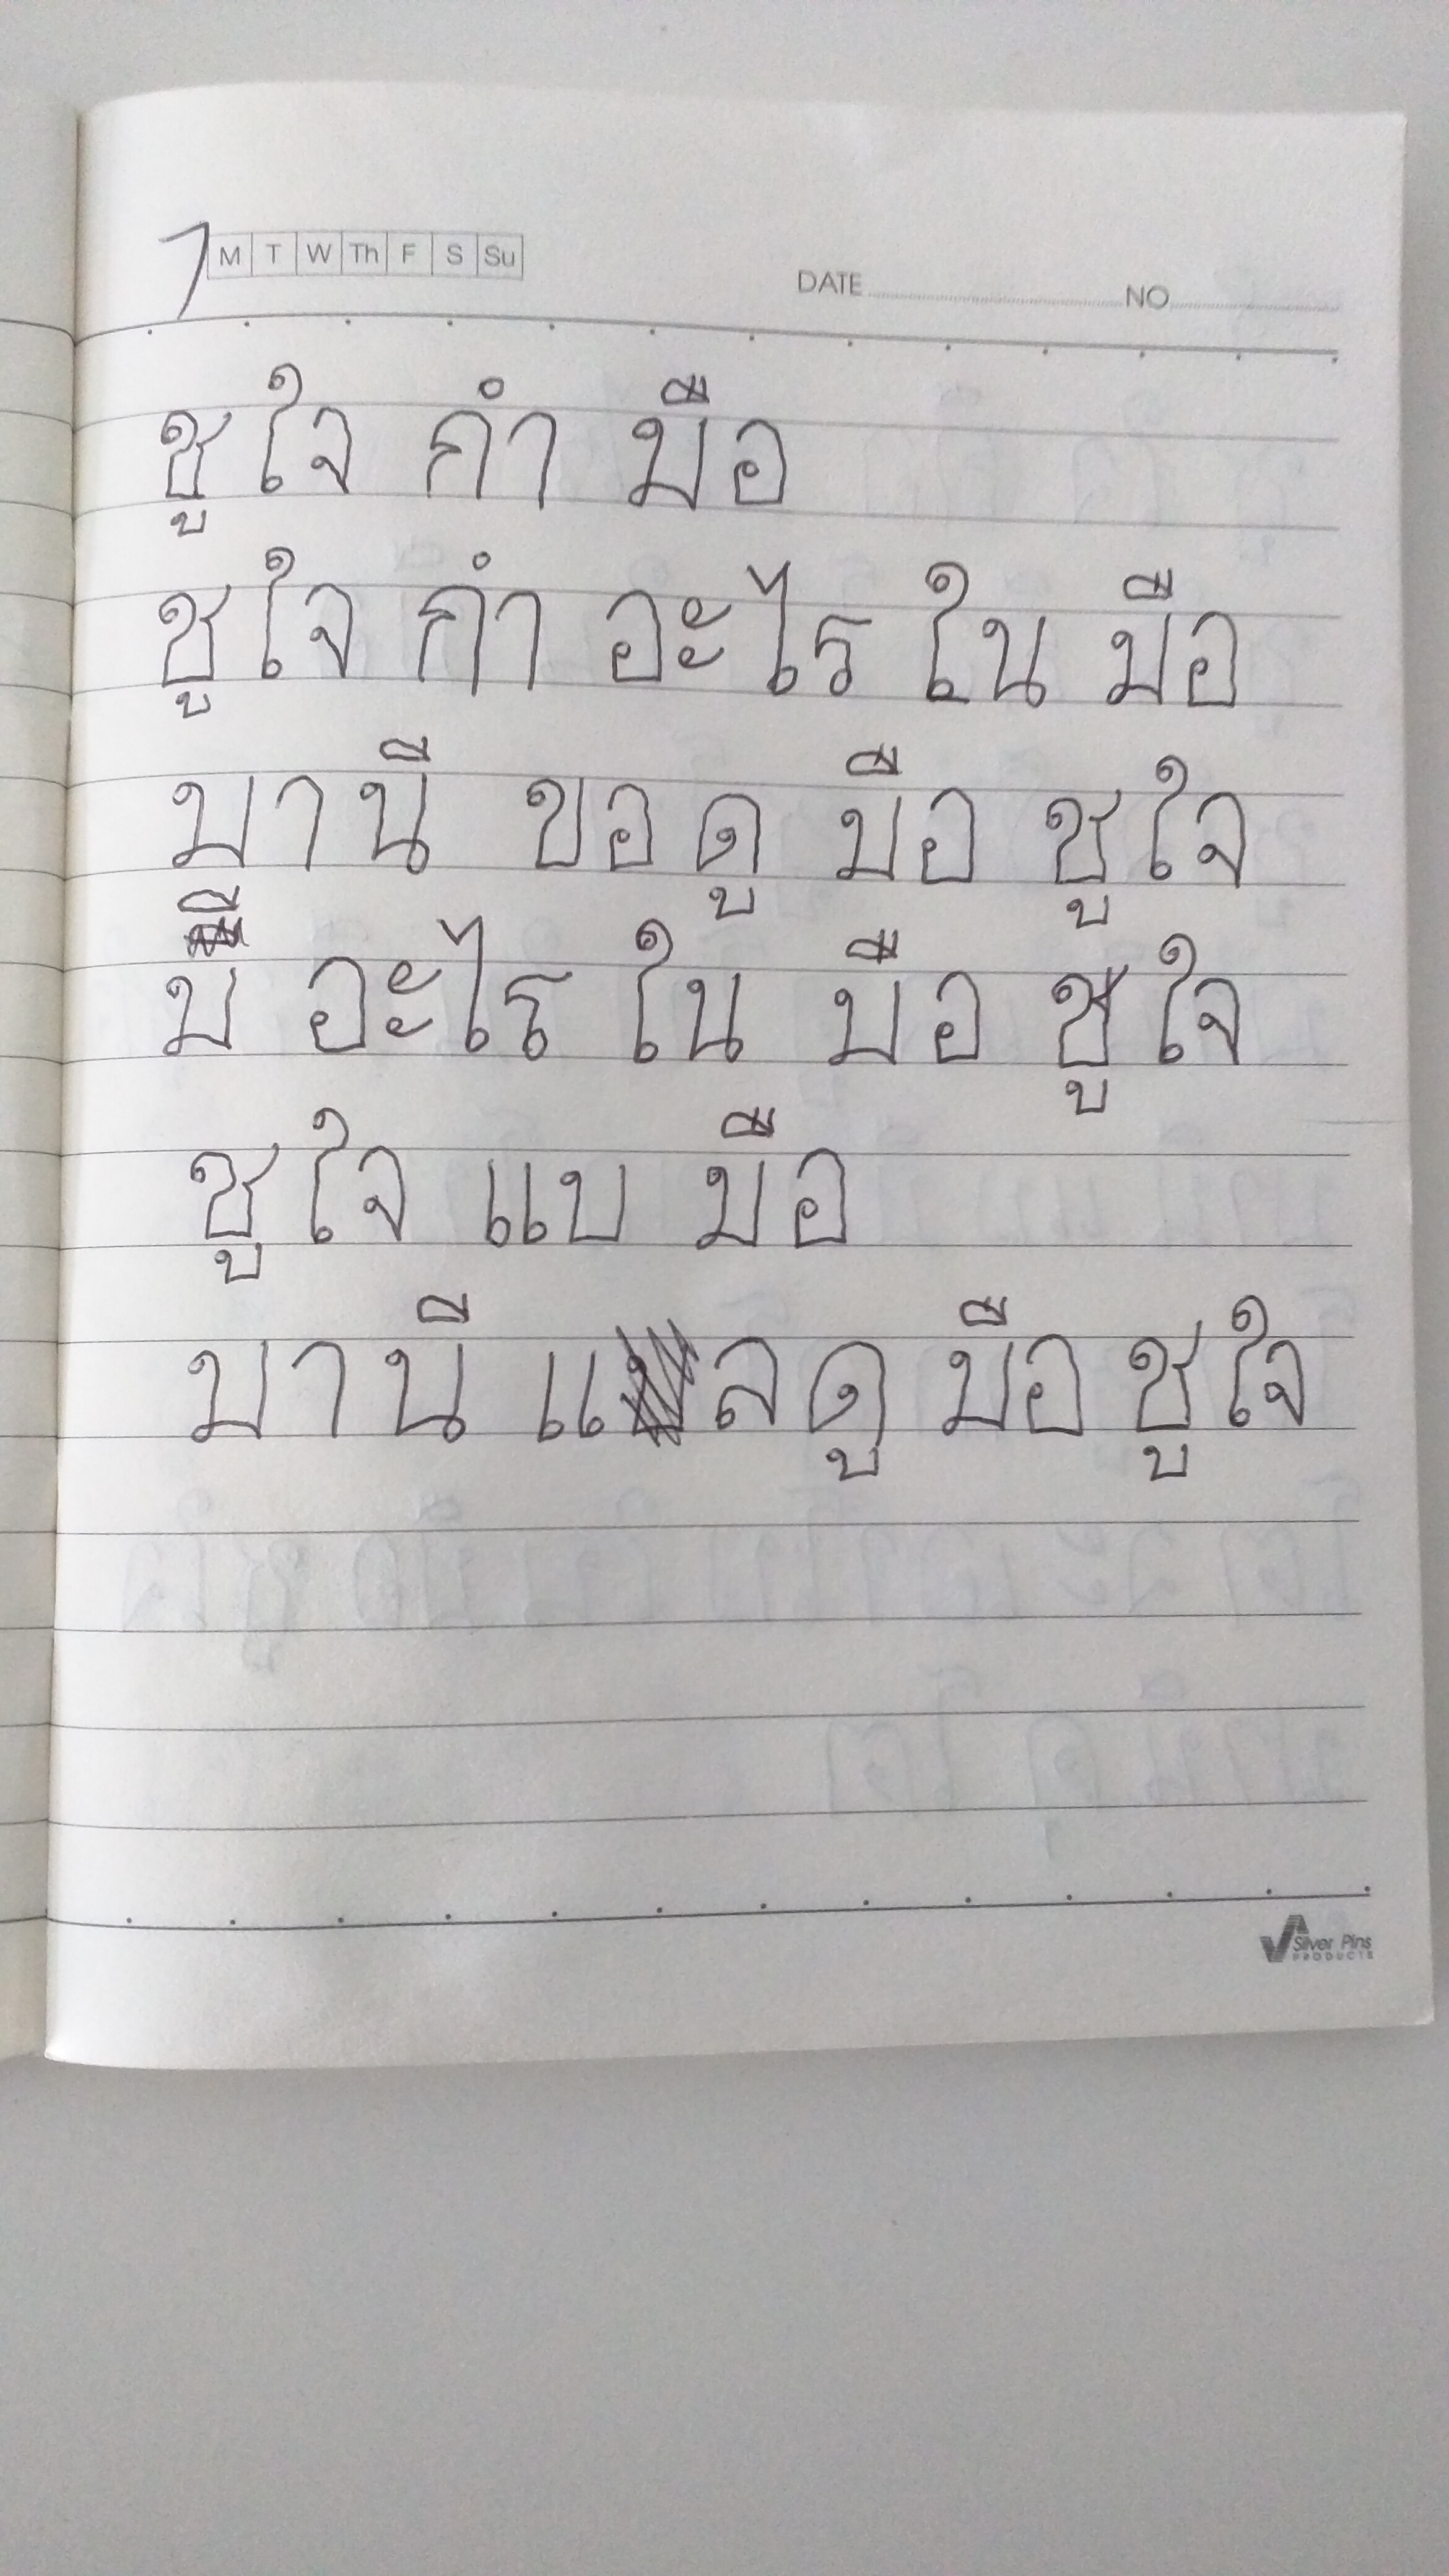 7
M T W Th F S Su
DATE NO
ชูใจ กำ มือ
ชูใจ กำ อะไร ใน มือ
มานี ขอ ดู มือ ชูใจ
มี อะไร ใน มือ ชูใจ
ชูใจ แบ มือ
มานี แลดู มือ ชูใจ
Silver Pins
PRODUCTS